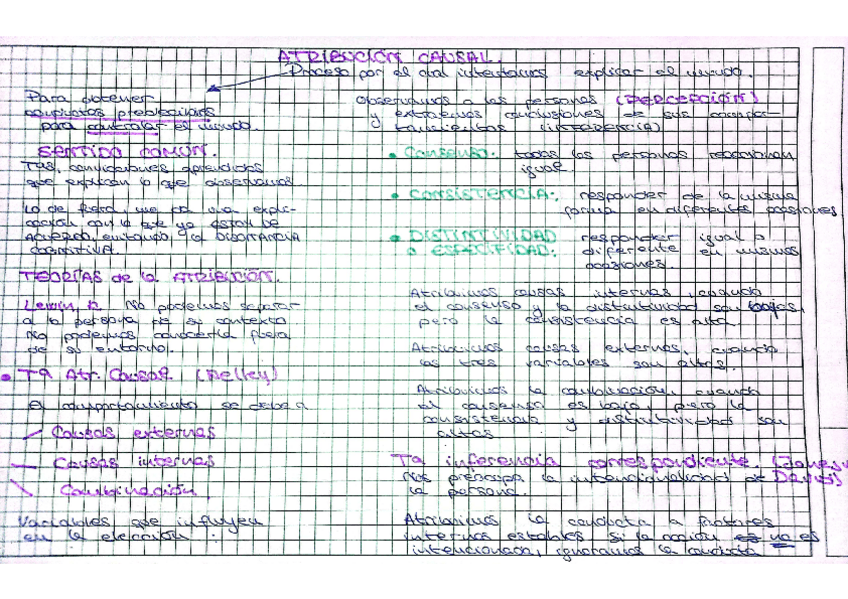 ATRIBUCIÓN CAUSAL.
Proceso por el cual intentamos explicar el mundo.
Para obtener
conjuntos predecibles
para controlar el mundo.
SENTIDO COMÚN.
Tas, convicciones aprendidas
que explican lo que observamos.
Lo de fuera, me da una expli-
cación con la que yo estoy de
acuerdo, evitando, la DISONANCIA
COGNITIVA.
TEORÍAS de la ATRIBUCIÓN.
Lewin, K. No podemos separar
a la persona de su contexto
No podemos conocerla fuera
de su entorno.
• Tª Atr. Causal (Kelley)
El comportamiento se debe a
Causas externas
Causas internas
Combinación
Variables que influyen
en la elección:
Observamos a las personas (PERCEPCIÓN)
y extraemos conclusiones de sus compor-
tamientos (INFERENCIA)
• Consenso: todas las personas reaccionan
igual.
• CONSISTENCIA: responder de la misma
forma en diferentes ocasiones
• DISTINTIVIDAD responder igual o
o ESPECIFIDAD: diferente en mismas
ocasiones.
Atribuimos causas internas, cuando
el consenso y la distintividad son bajos,
pero la consistencia es alta.
Atribuimos causas externas, cuando
las tres variables son altas.
Atribuimos la combinación, cuando
el consenso es bajo, pero la
consistencia y distintividad son
altas
Tª inferencia correspondiente. (Jones y
Nos preocupa la intencionalidad de Davis)
la persona.
Atribuimos la conducta a factores
internos estables. Si la acción no es
intencionada, ignoramos la conducta